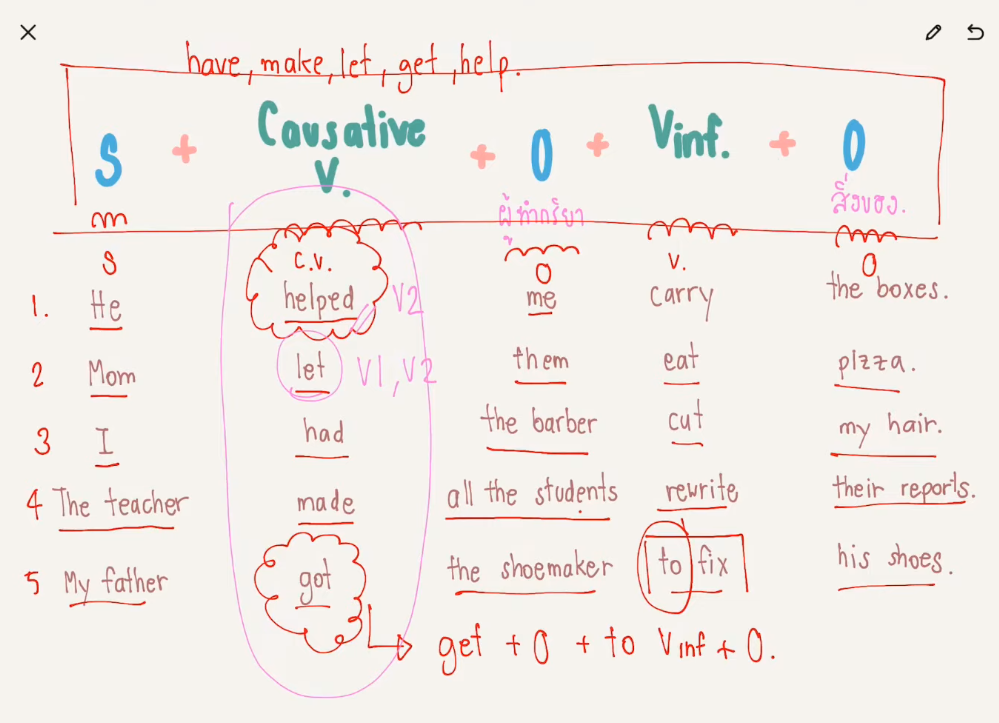 have, make, let, get, help.
S + Causative V. + O + Vinf. + O
ผู้ทำกริยา สิ่งของ.
S C.V. O V. O
1. He helped V2 me carry the boxes.
2 Mom let V1, V2 them eat pizza.
3 I had the barber cut my hair.
4 The teacher made all the students rewrite their reports.
5 My father got the shoemaker to fix his shoes.
get + O + to Vinf + O.